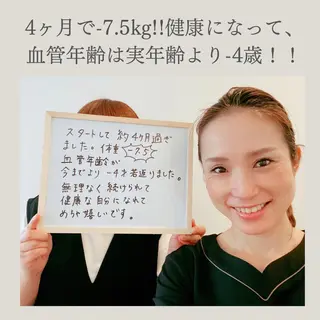 4ヶ月で-7.5kg!!健康になって、
血管年齢は実年齢より-4歳！！
スタートして 約4ヶ月過ぎ
ました。体重 -7.5
血管年齢が
今までより -4才若返りました。
無理なく 続けられて
健康な自分になれて
めちゃ嬉しいです。